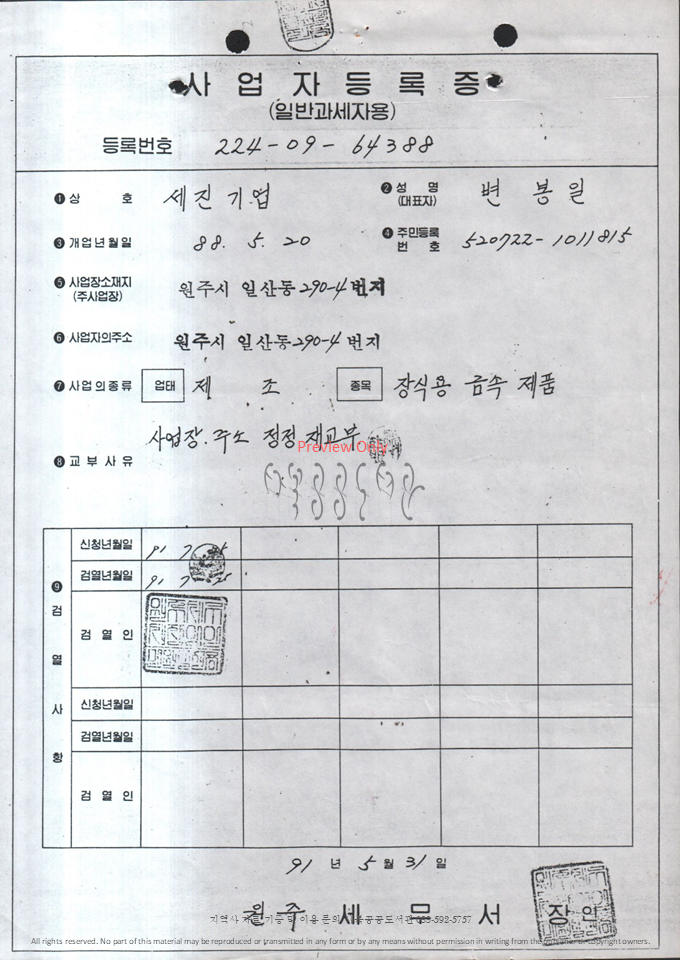 사업자등록증
(일반과세자용)
등록번호 224-09-64388
❶ 상 호 세진기업 ❷ 성 명 (대표자) 변봉일
❸ 개업년월일 88. 5. 20 ❹ 주민등록 번 호 520722-1011815
❺ 사업장소재지 (주사업장) 원주시 일산동 290-4 번지
❻ 사업자의주소 원주시 일산동 290-4 번지
❼ 사업의종류 업태 제 조 종목 장식용 금속 제품
사업장.주소 정정 재교부
Preview Only
❽ 교부사유
❾ 검열사항
신청년월일 91 7
검열년월일 91 7
검 열 인
신청년월일
검열년월일
검 열 인
91 년 5 월 31 일
원주세무서장 인
All rights reserved. No part of this material may be reproduced or transmitted in any form or by any means without permission in writing from the copyright owners.